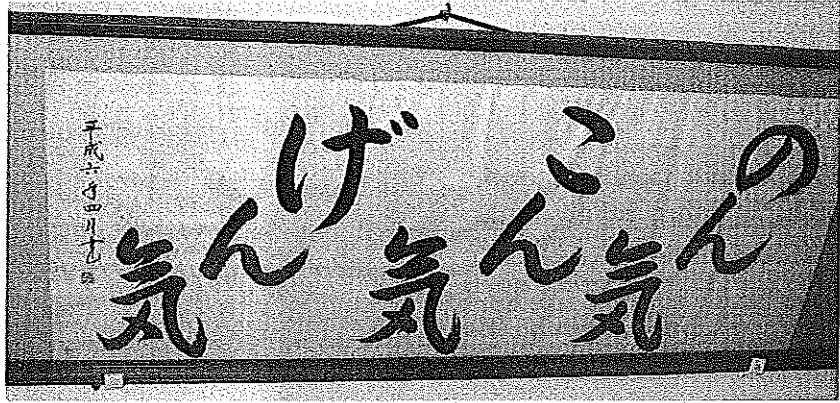 のん気
こん気
げん気
平成六年四月書